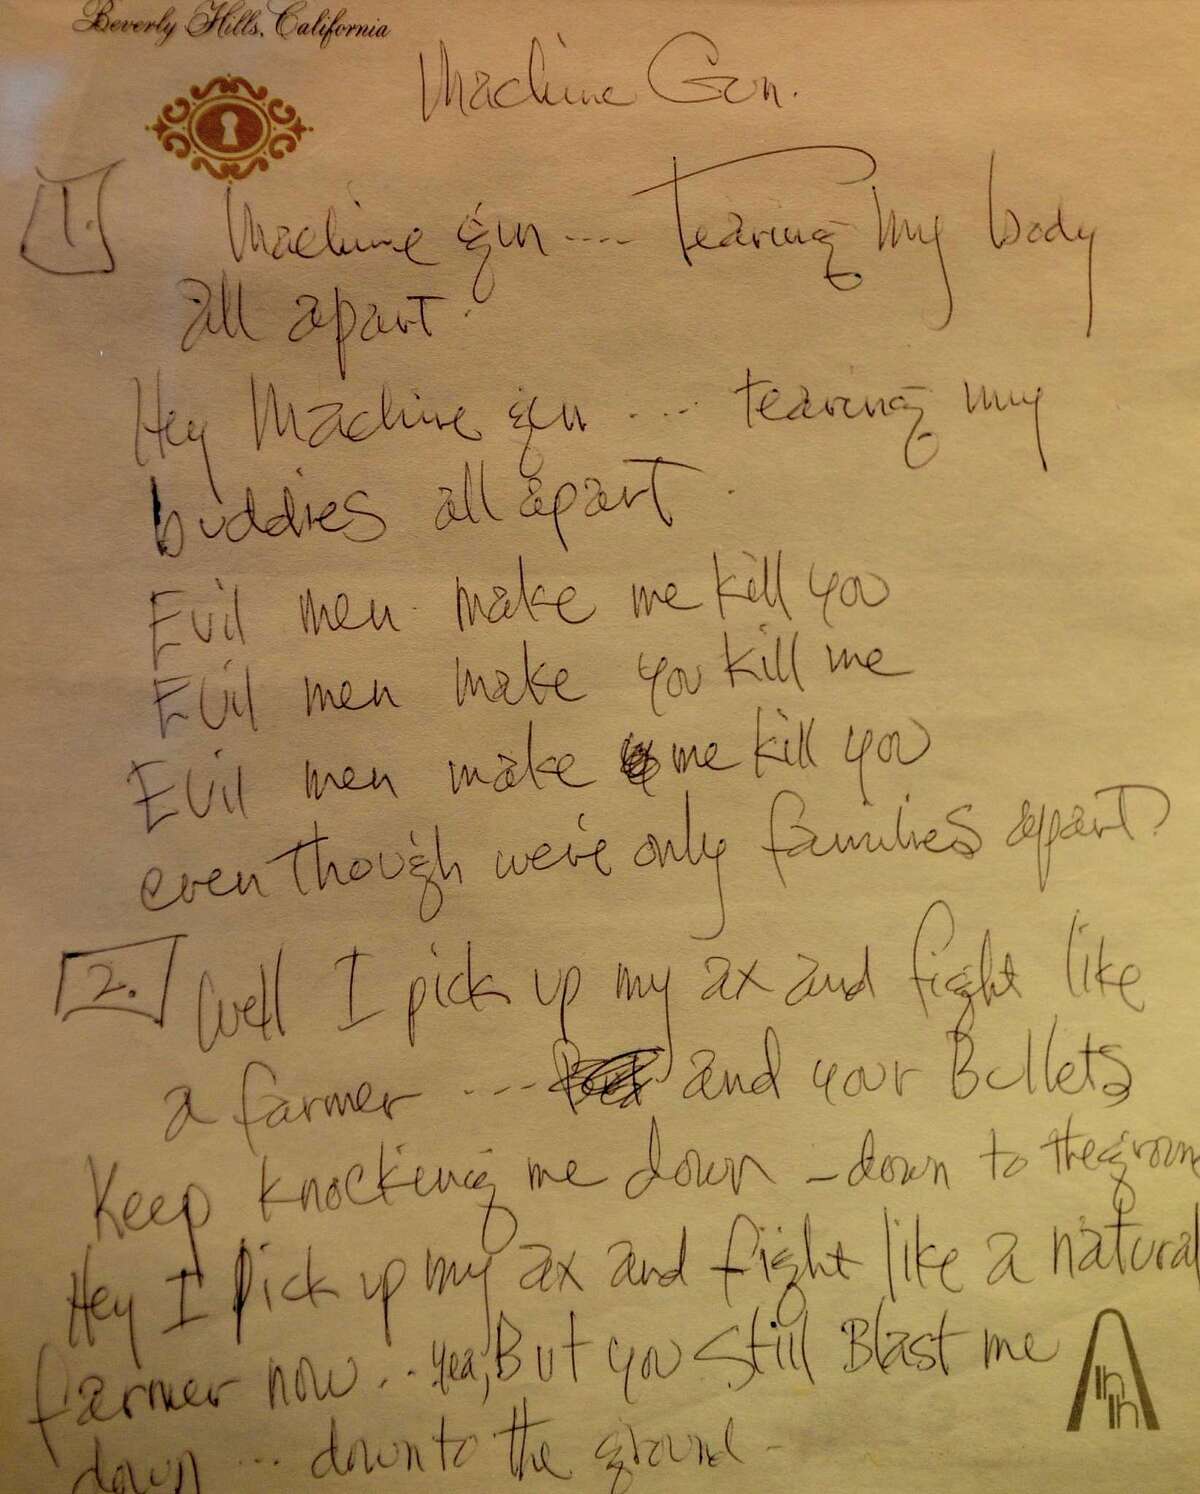 Beverly Hills, California
Machine Gun.
1. Machine gun .... Tearing My body
all apart.
Hey Machine gun .... tearing my
buddies all apart.
Evil men make me kill you
Evil men make you kill me
Evil men make me kill you
even though we're only families apart
2. Well I pick up my ax and fight like
a farmer ... and your Bullets
Keep knocking me down - down to the groun
Hey I Pick up my ax and fight like a natural
farmer now... yea, But you Still Blast me
down ... down to the ground -